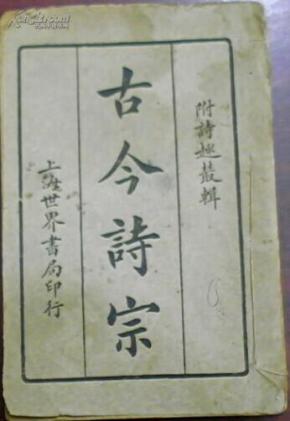 附詩趣叢輯
古今詩宗
上海世界書局印行